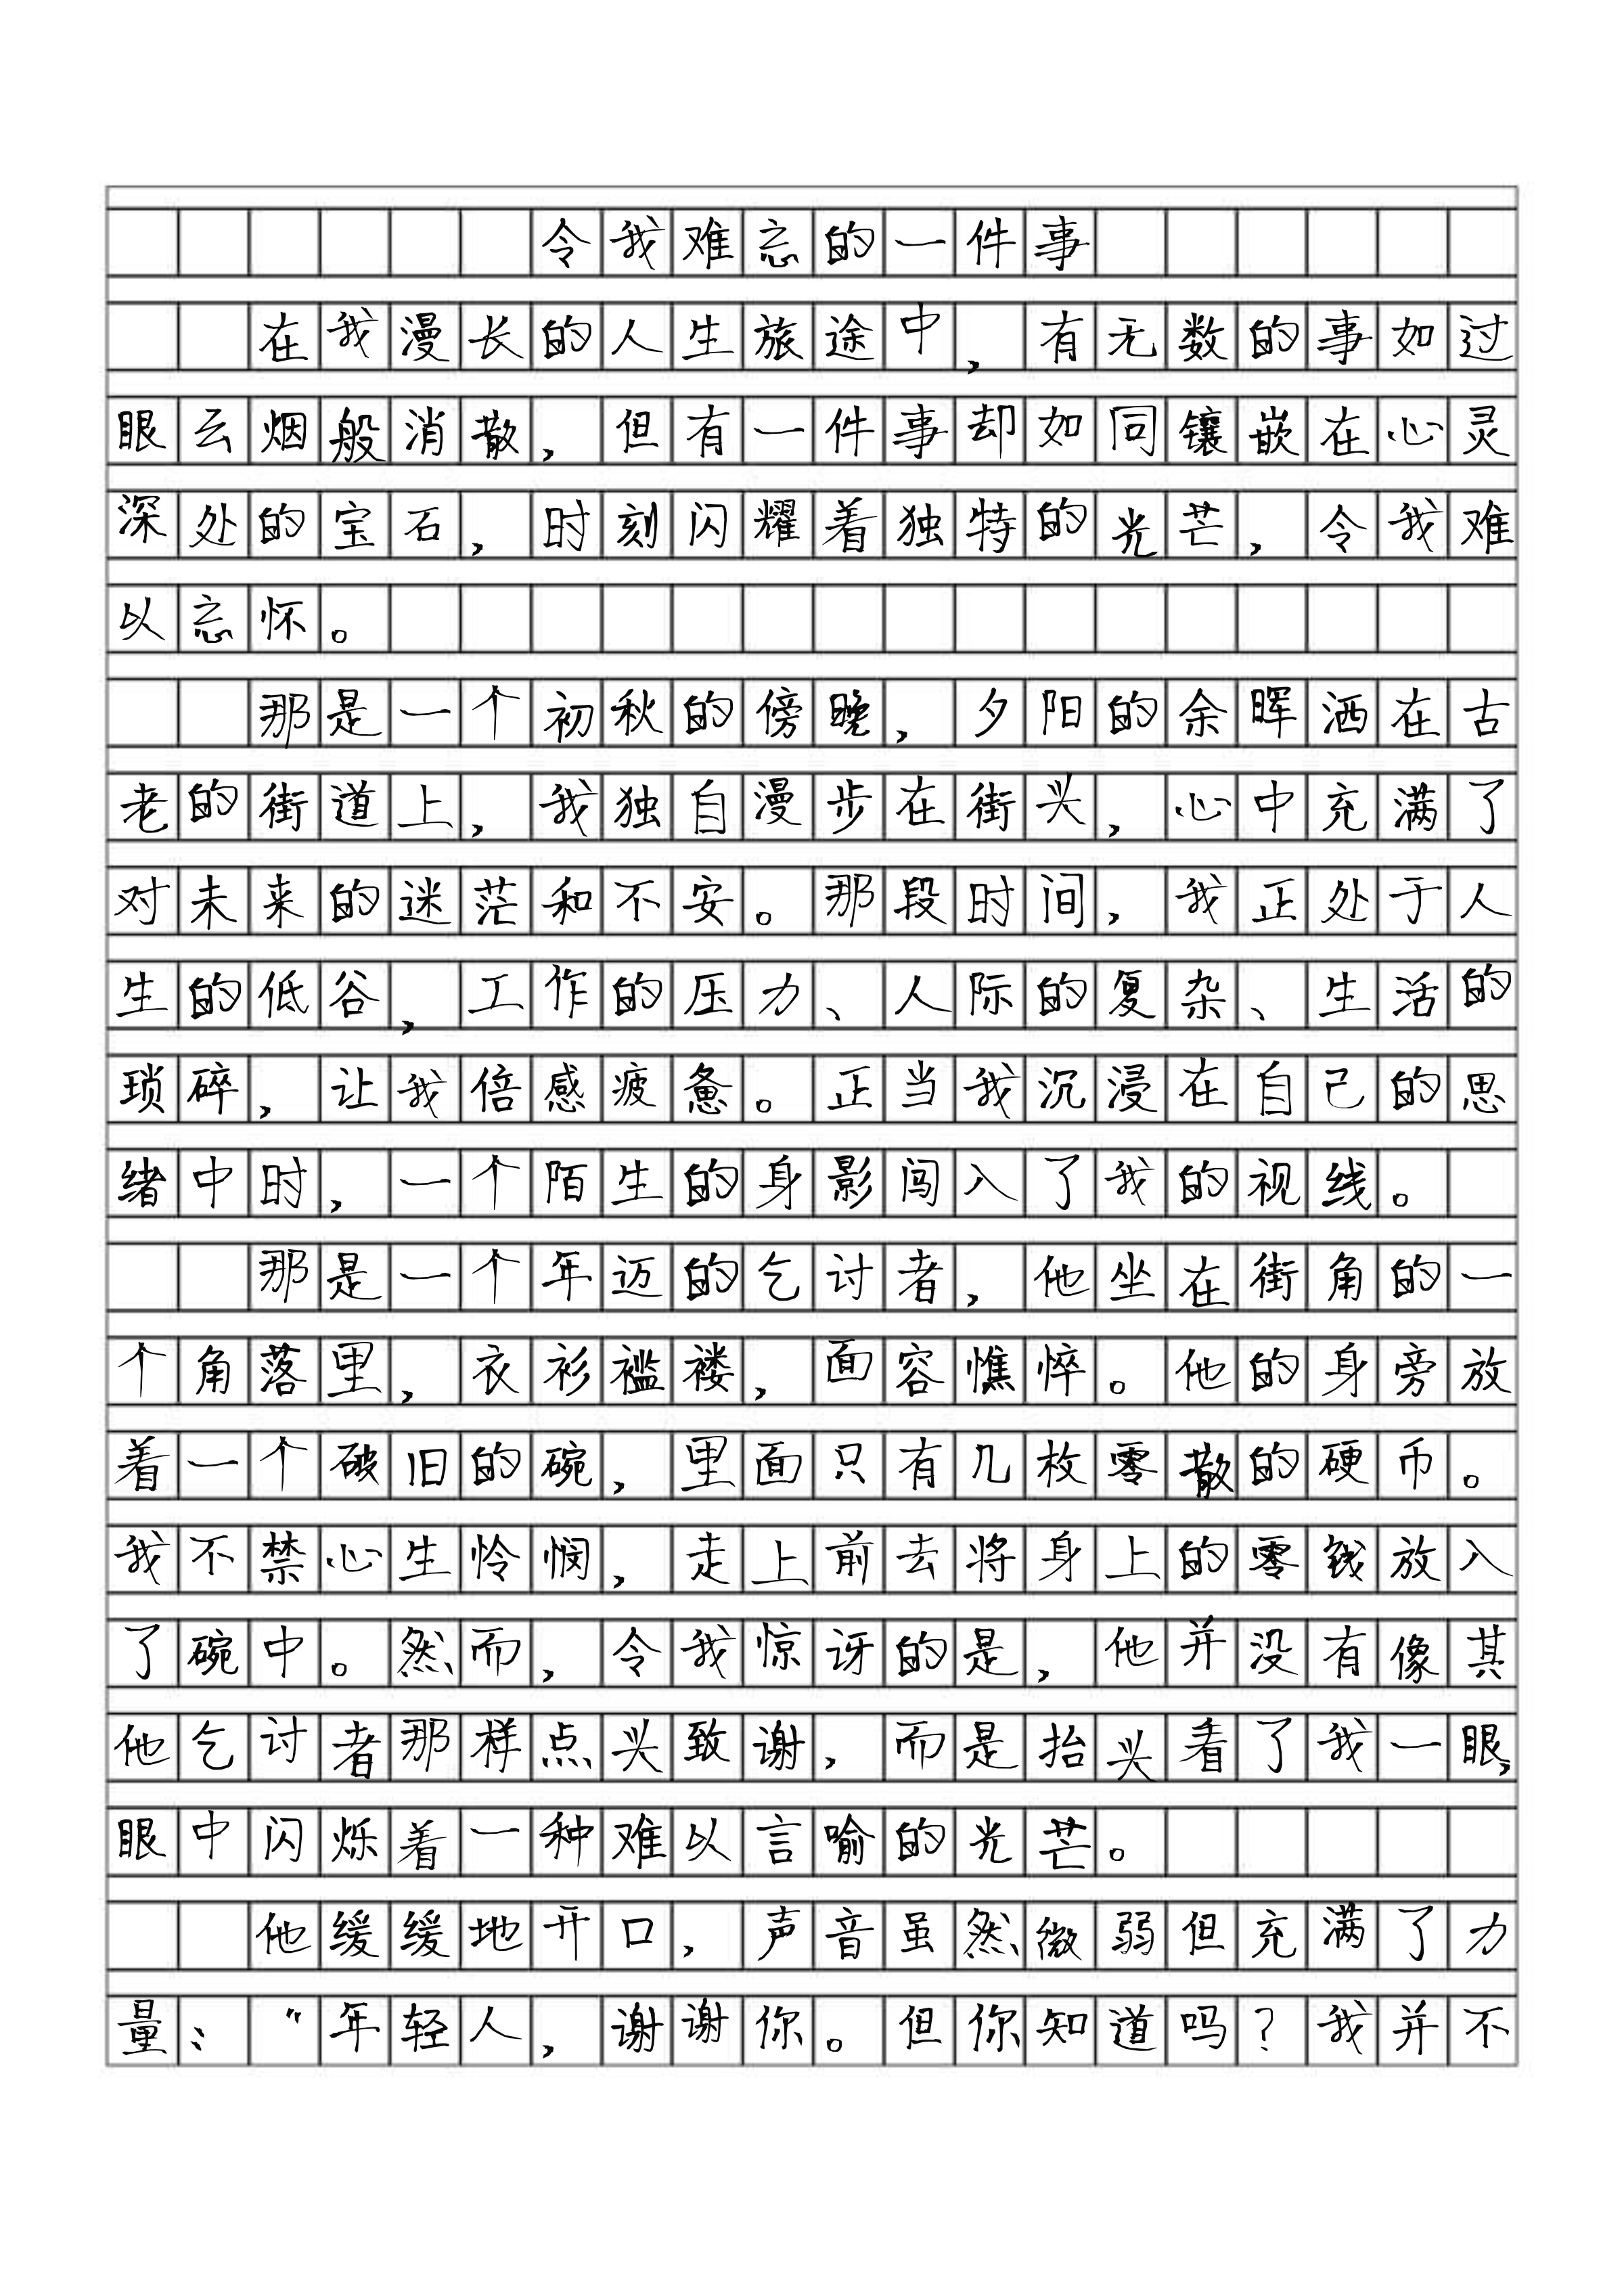 令我难忘的一件事
在我漫长的人生旅途中，有无数的事如过
眼云烟般消散，但有一件事却如同镶嵌在心灵
深处的宝石，时刻闪耀着独特的光芒，令我难
以忘怀。
那是一个初秋的傍晚，夕阳的余晖洒在古
老的街道上，我独自漫步在街头，心中充满了
对未来的迷茫和不安。那段时间，我正处于人
生的低谷，工作的压力、人际的复杂、生活的
琐碎，让我倍感疲惫。正当我沉浸在自己的思
绪中时，一个陌生的身影闯入了我的视线。
那是一个年迈的乞讨者，他坐在街角的一
个角落里，衣衫褴褛，面容憔悴。他的身旁放
着一个破旧的碗，里面只有几枚零散的硬币。
我不禁心生怜悯，走上前去将身上的零钱放入
了碗中。然而，令我惊讶的是，他并没有像其
他乞讨者那样点头致谢，而是抬头看了我一眼，
眼中闪烁着一种难以言喻的光芒。
他缓缓地开口，声音虽然微弱但充满了力
量：“年轻人，谢谢你。但你知道吗？我并不